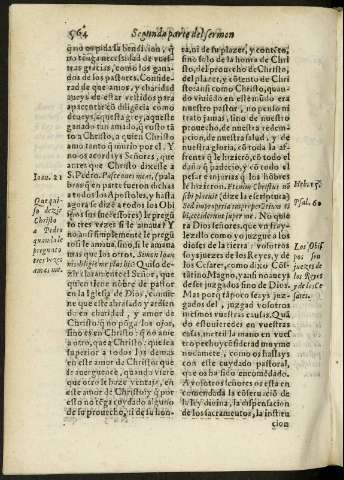 564
Segunda parte del sermon
q̃ no os pida la bendicion, q̃
no tẽga necessidad de vues-
tras gracias, como los gana-
dos de los pastores. Conside-
rad de que amor, y charidad
aueys de estar vestidos para
apacentar dignamente como
deueys, aquesta grey, aqueste
ganado tan amado, q̃ costo tã
to a Christo, a quien Christo
amo tanto q̃ murio por el. Y
no os acordays Señores, que
antes que Christo dixesse a
S. Pedro Pasce oues meas, (pala
bra q̃ en parte fueron dichas
a todos los Apostoles, y hasta
agora se dize a todos los Obi
spos sus successores) le pregũ
to tres vezes si le amaua. Y
no ansi simplemente le pregũ
to si le amaua, sino, si le amaua
mas que los otros. Simon Ioan
nis diligis me plus his? Quiso de-
zir claramente el Señor, que
que quiẽ tiene nõbre de pastor
en la Iglesia de Dios, cõuie-
ne que este abrasado y ardiẽ-
do en charidad, y amor de
Christo: q̃ no põga los ojos,
sino es en Christo: q̃ no ame a
otro, que a Christo: que sea
superior a todos los demas
en este amor de Christo: que
se auerguence, quando viere
que otro le haze ventaja, en
este amor de Christo: y q̃ por
esto no tẽga cuydado alguno
de su prouecho, ni de su hon-
Ioan. 21
Que qui-
so dezir
Christo
a Pedro
quando le
pregunto
tres vezes
amas me.
ra, ni de su plazer, y contẽto,
sino solo de la honra de Chri
sto, del prouecho de Christo,
del plazer, y cõtento de Chri
sto: ansi como Christo, quan-
do viuiẽdo en este mũdo era
nuestro pastor, no pensò en
tratar sino de nuestra honra,
de prouecho, de nuestra redem
pcion, de nuestra salud, y de
nuestra gloria, cõ toda la a-
frenta q̃ le hizierõ, cõ todo el
daño q̃ padecio, y cõ todo el
pesar q̃ injurias q̃ los hõbres
le hizieron. Etenim Christus nõ
sibi placuit (dize la escriptura)
Sed improperia improperantiũ ti
bi, ceciderunt super me. No que-
ria Dios Señores, que vn grey
se leuantasse cõ vosotros, y di-
xesse como yo juzgue a los
dioses de la tierra: vosotros
soys juezes de los Reyes, y de
los Cesares, como dixo Cõs-
tãtino Magno, ya no aueys de
ser juzgados de vosotros.
Mas por q̃ tãpoco seays juz-
gados deste juyzio vosotros
mismos en vuestras cusas. Quã
do estuuieredes en vuestras
casas, metẽ la mano en vues-
tro pecho y cõsiderad muy me
nudamente, como os hallays
con este cuydado pastoral,
que os ha sido encomẽdado.
A vosotros señores os esta en
comendada la cõseruaciõ de
la ley diuina, la dispensacion
de los sacramentos, la instru
cion
Psal. 60
Los Obis
pos son
juezes de
los Reyes
y de los Ce
sares.